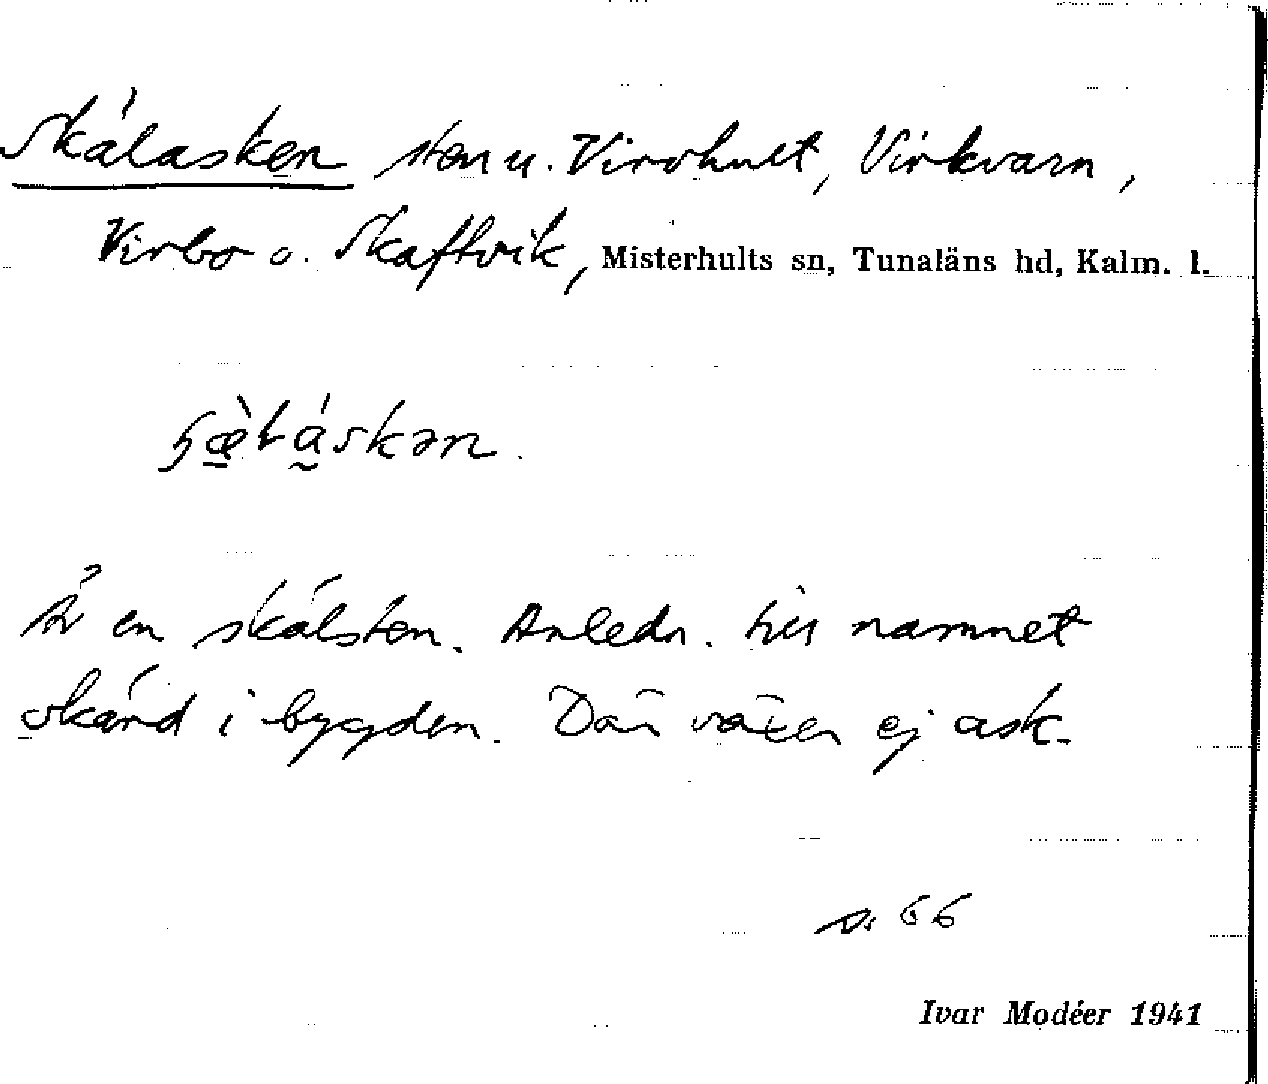 Skälasken sten u. Virohult, Virkvarn,
Virbo o. Skaftvik, Misterhults sn, Tunaläns hd, Kalm. l.
Är en skälsten. Anledn. till namnet
okänd i bygden. Där växer ej ask.
s. 66
Ivar Modéer 1941